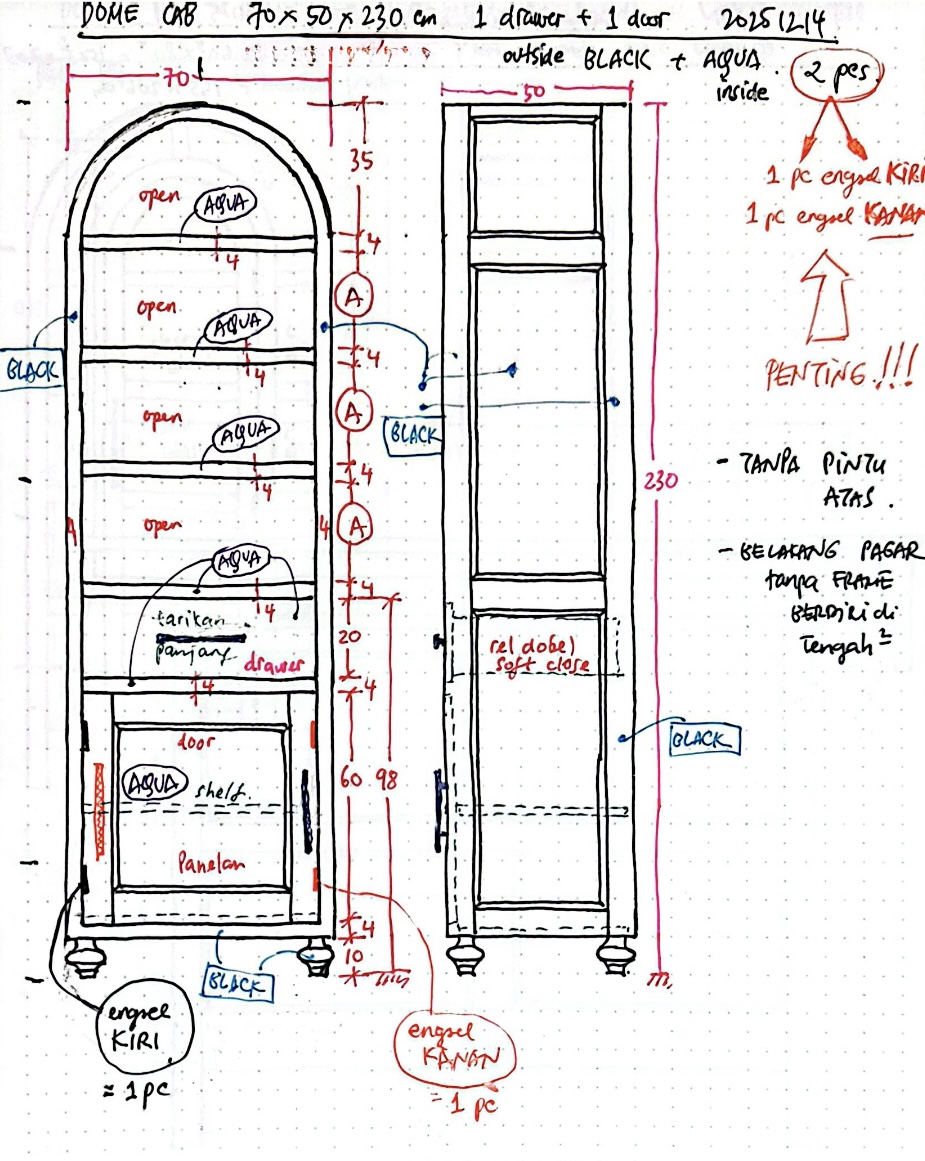 DOME CAB 70 x 50 x 230 cm 1 drawer + 1 door 20251214
outside BLACK + AQUA inside
2 pcs
1 pc engsel KIRI
1 pc engsel KANAN
PENTING!!!
- TANPA PINTU
ATAS.
- BELAKANG PAGAR
tanpa FRAME
BERDIRI di
Tengah²
70
35
open
AQUA
4
4
A
open
AQUA
4
4
BLACK
A
open
AQUA
4
4
A
4
open
4
AQUA
4
4
tarikan
panjang
drawer
20
4
4
door
AQUA
shelf.
60
98
Panelan
4
10
BLACK
engsel
KIRI
= 1 pc
engsel
KANAN
= 1 pc
50
BLACK
230
rel dobel
soft close
BLACK